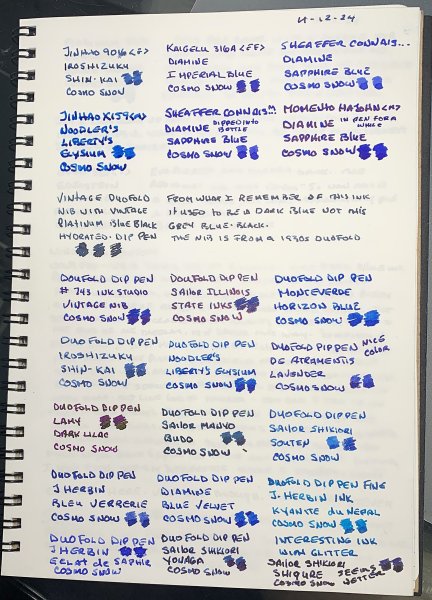 11-12-24
JINHAO 9016 <F>
IROSHIZUKU
SHIN-KAI
COSMO SNOW
KAIGELU 316A <EF>
DIAMINE
IMPERIAL BLUE
COSMO SNOW
SHEAFFER CONNAIS...
DIAMINE
SAPPHIRE BLUE
COSMO SNOW
JINHAO X159 <M>
NOODLER'S
LIBERTY'S
ELYSIUM
COSMO SNOW
SHEAFFER CONNAIS...
DIAMINE DIPPED INTO BOTTLE
SAPPHIRE BLUE
COSMO SNOW
MOMENTO MAJOHN <M>
DIAMINE IN PEN FOR A WHILE
SAPPHIRE BLUE
COSMO SNOW
VINTAGE DUOFOLD
NIB WITH VINTAGE
PLATINUM BLUE BLACK
HYDRATED. DIP PEN
FROM WHAT I REMEMBER OF THIS INK
IT USED TO BE A DARK BLUE NOT THIS
GREY BLUE-BLACK.
THE NIB IS FROM A 1930s DUOFOLD
DUOFOLD DIP PEN
# 743 INK STUDIO
VINTAGE NIB
COSMO SNOW
DUOFOLD DIP PEN
SAILOR ILLINOIS
STATE INKS
COSMO SNOW
DUOFOLD DIP PEN
MONTEVERDE
HORIZON BLUE
COSMO SNOW
DUOFOLD DIP PEN
IROSHIZUKU
SHIN-KAI
COSMO SNOW
DUOFOLD DIP PEN
NOODLER'S
LIBERTY'S ELYSIUM
COSMO SNOW
DUOFOLD DIP PEN NICE COLOR
DE ATRAMENTIS
LAVENDER
COSMO SNOW
DUOFOLD DIP PEN
LAMY
DARK LILAC
COSMO SNOW
DUOFOLD DIP PEN
SAILOR MANYO
BUDO
COSMO SNOW
DUOFOLD DIP PEN
SAILOR SHIKIORI
SOUTEN
COSMO SNOW
DUOFOLD DIP PEN
J HERBIN
BLEU VERRERIE
COSMO SNOW
DUOFOLD DIP PEN
DIAMINE
BLUE VELVET
COSMO SNOW
DUOFOLD DIP PEN FINE
J. HERBIN INK
KYANITE DU NEPAL
COSMO SNOW
DUOFOLD DIP PEN
J HERBIN
ECLAT de SAPHIR
COSMO SNOW
DUOFOLD DIP PEN
SAILOR SHIKIORI
YONAGA
COSMO SNOW
INTERESTING INK
WITH GLITTER
SAILOR SHIKIORI
SHIGURE SEEMS
COSMO SNOW WETTER